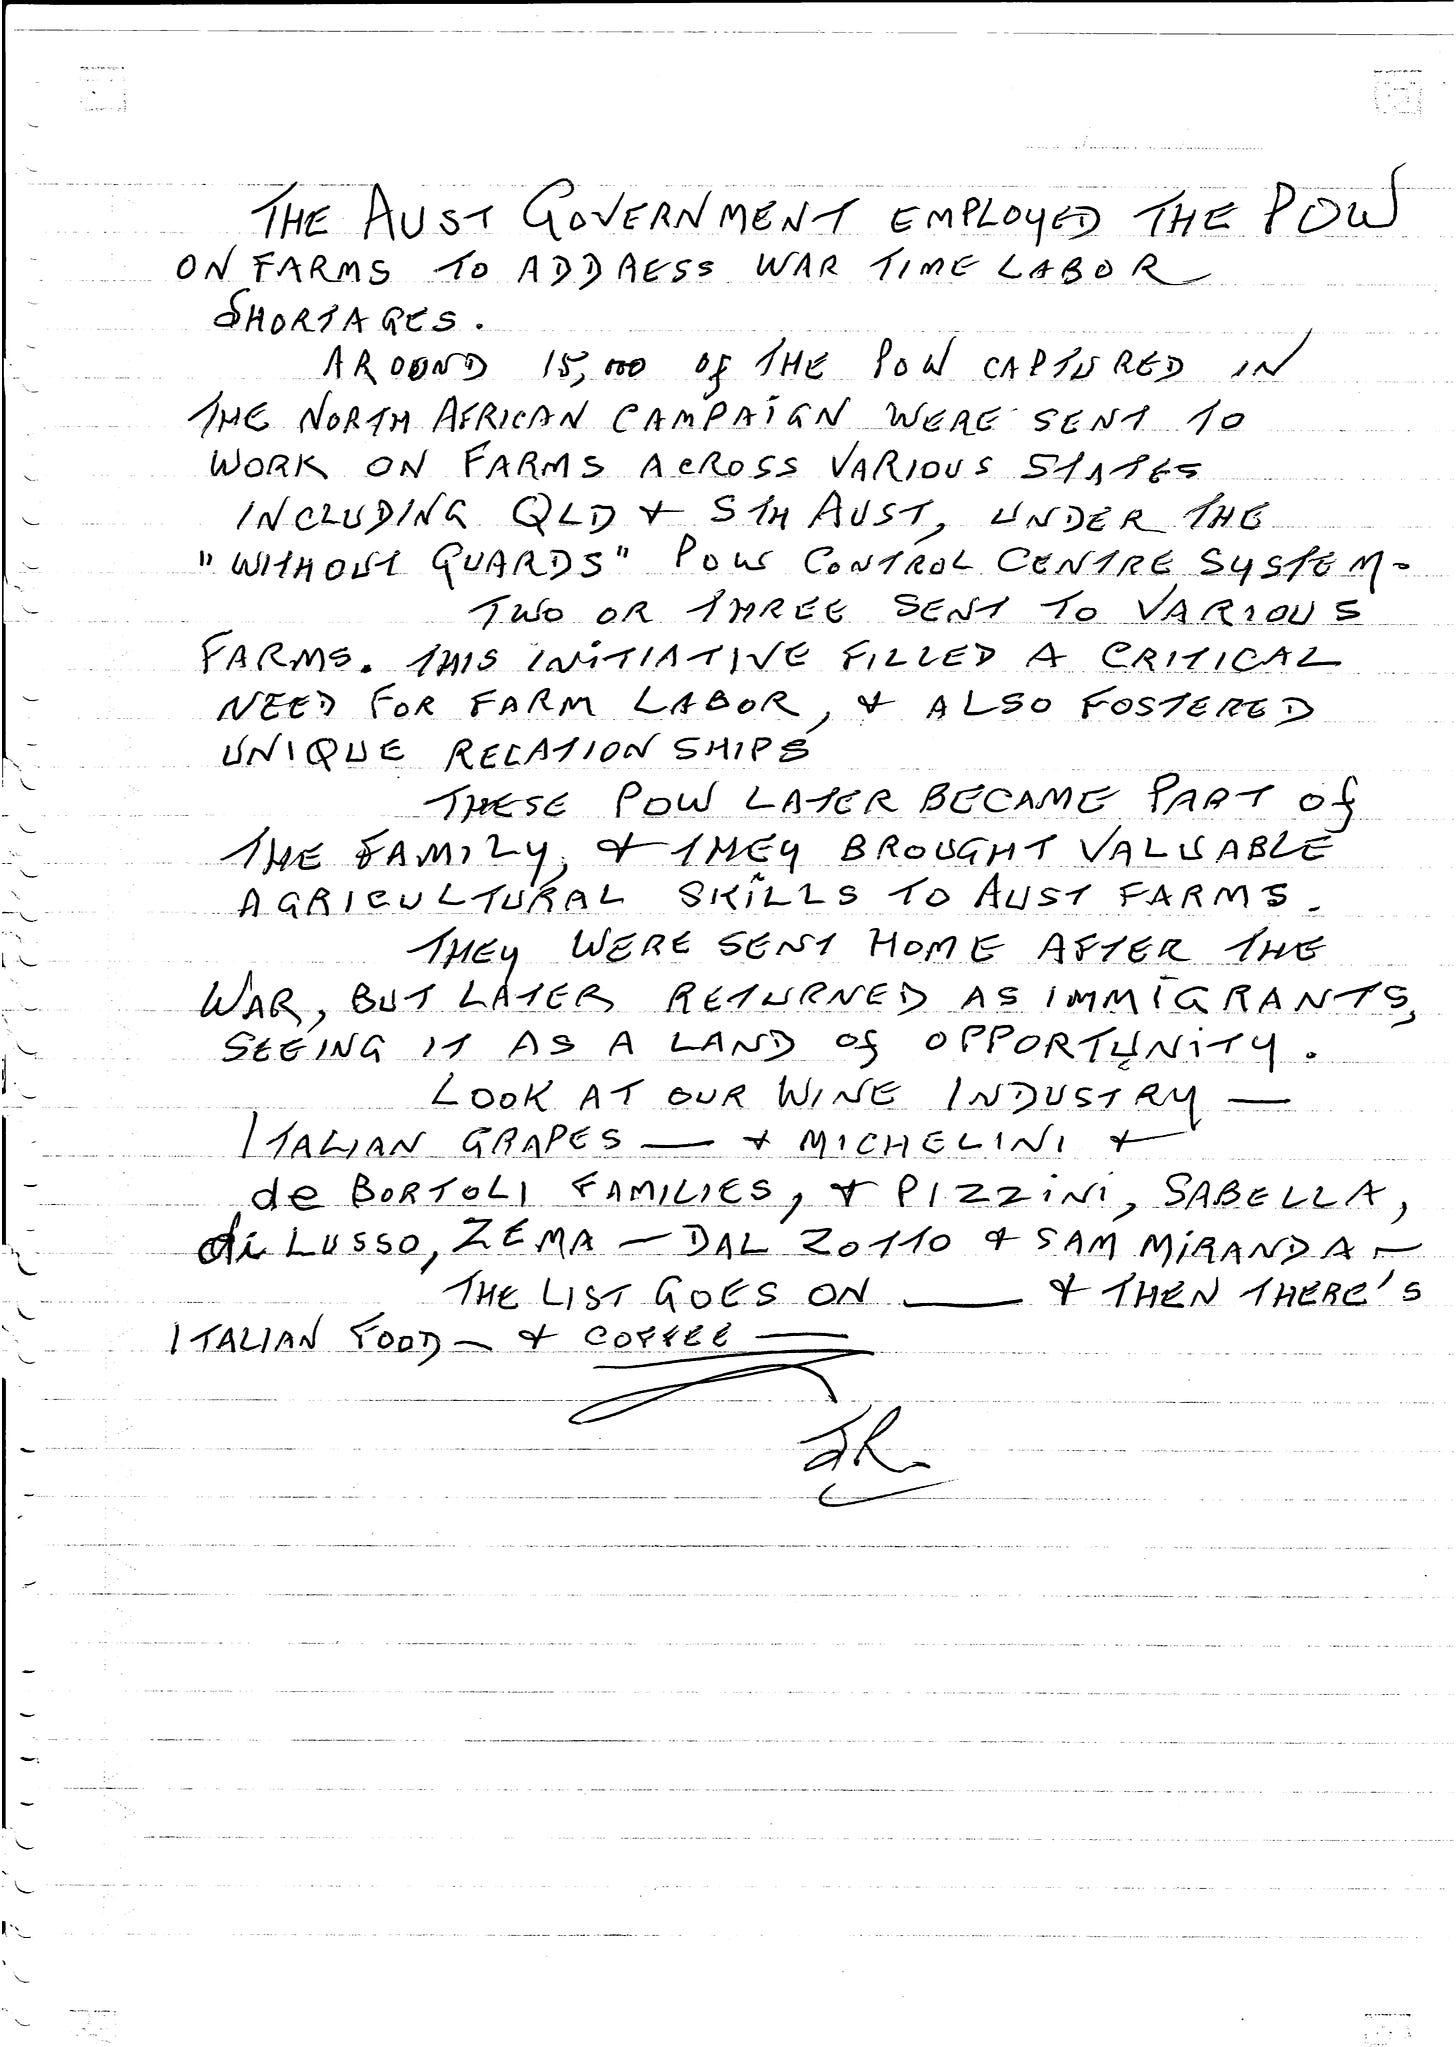 THE AUST GOVERNMENT EMPLOYED THE POW
ON FARMS TO ADDRESS WAR TIME LABOR
SHORTAGES.
AROUND 15,000 of THE POW CAPTURED IN
THE NORTH AFRICAN CAMPAIGN WERE SENT TO
WORK ON FARMS ACROSS VARIOUS STATES
INCLUDING QLD & STH AUST, UNDER THE
"WITHOUT GUARDS" POW CONTROL CENTRE SYSTEM.
TWO OR THREE SENT TO VARIOUS
FARMS. THIS INITIATIVE FILLED A CRITICAL
NEED FOR FARM LABOR, & ALSO FOSTERED
UNIQUE RELATIONSHIPS
THESE POW LATER BECAME PART of
THE FAMILY, & THEY BROUGHT VALUABLE
AGRICULTURAL SKILLS TO AUST FARMS.
THEY WERE SENT HOME AFTER THE
WAR, BUT LATER RETURNED AS IMMIGRANTS,
SEEING IT AS A LAND of OPPORTUNITY.
LOOK AT OUR WINE INDUSTRY —
ITALIAN GRAPES — & MICHELINI &
de BORTOLI FAMILIES, & PIZZINI, SABELLA,
di LUSSO, ZEMA — DAL ZOTTO & SAM MIRANDA —
THE LIST GOES ON — & THEN THERE'S
ITALIAN FOOD — & COFFEE —
JR.